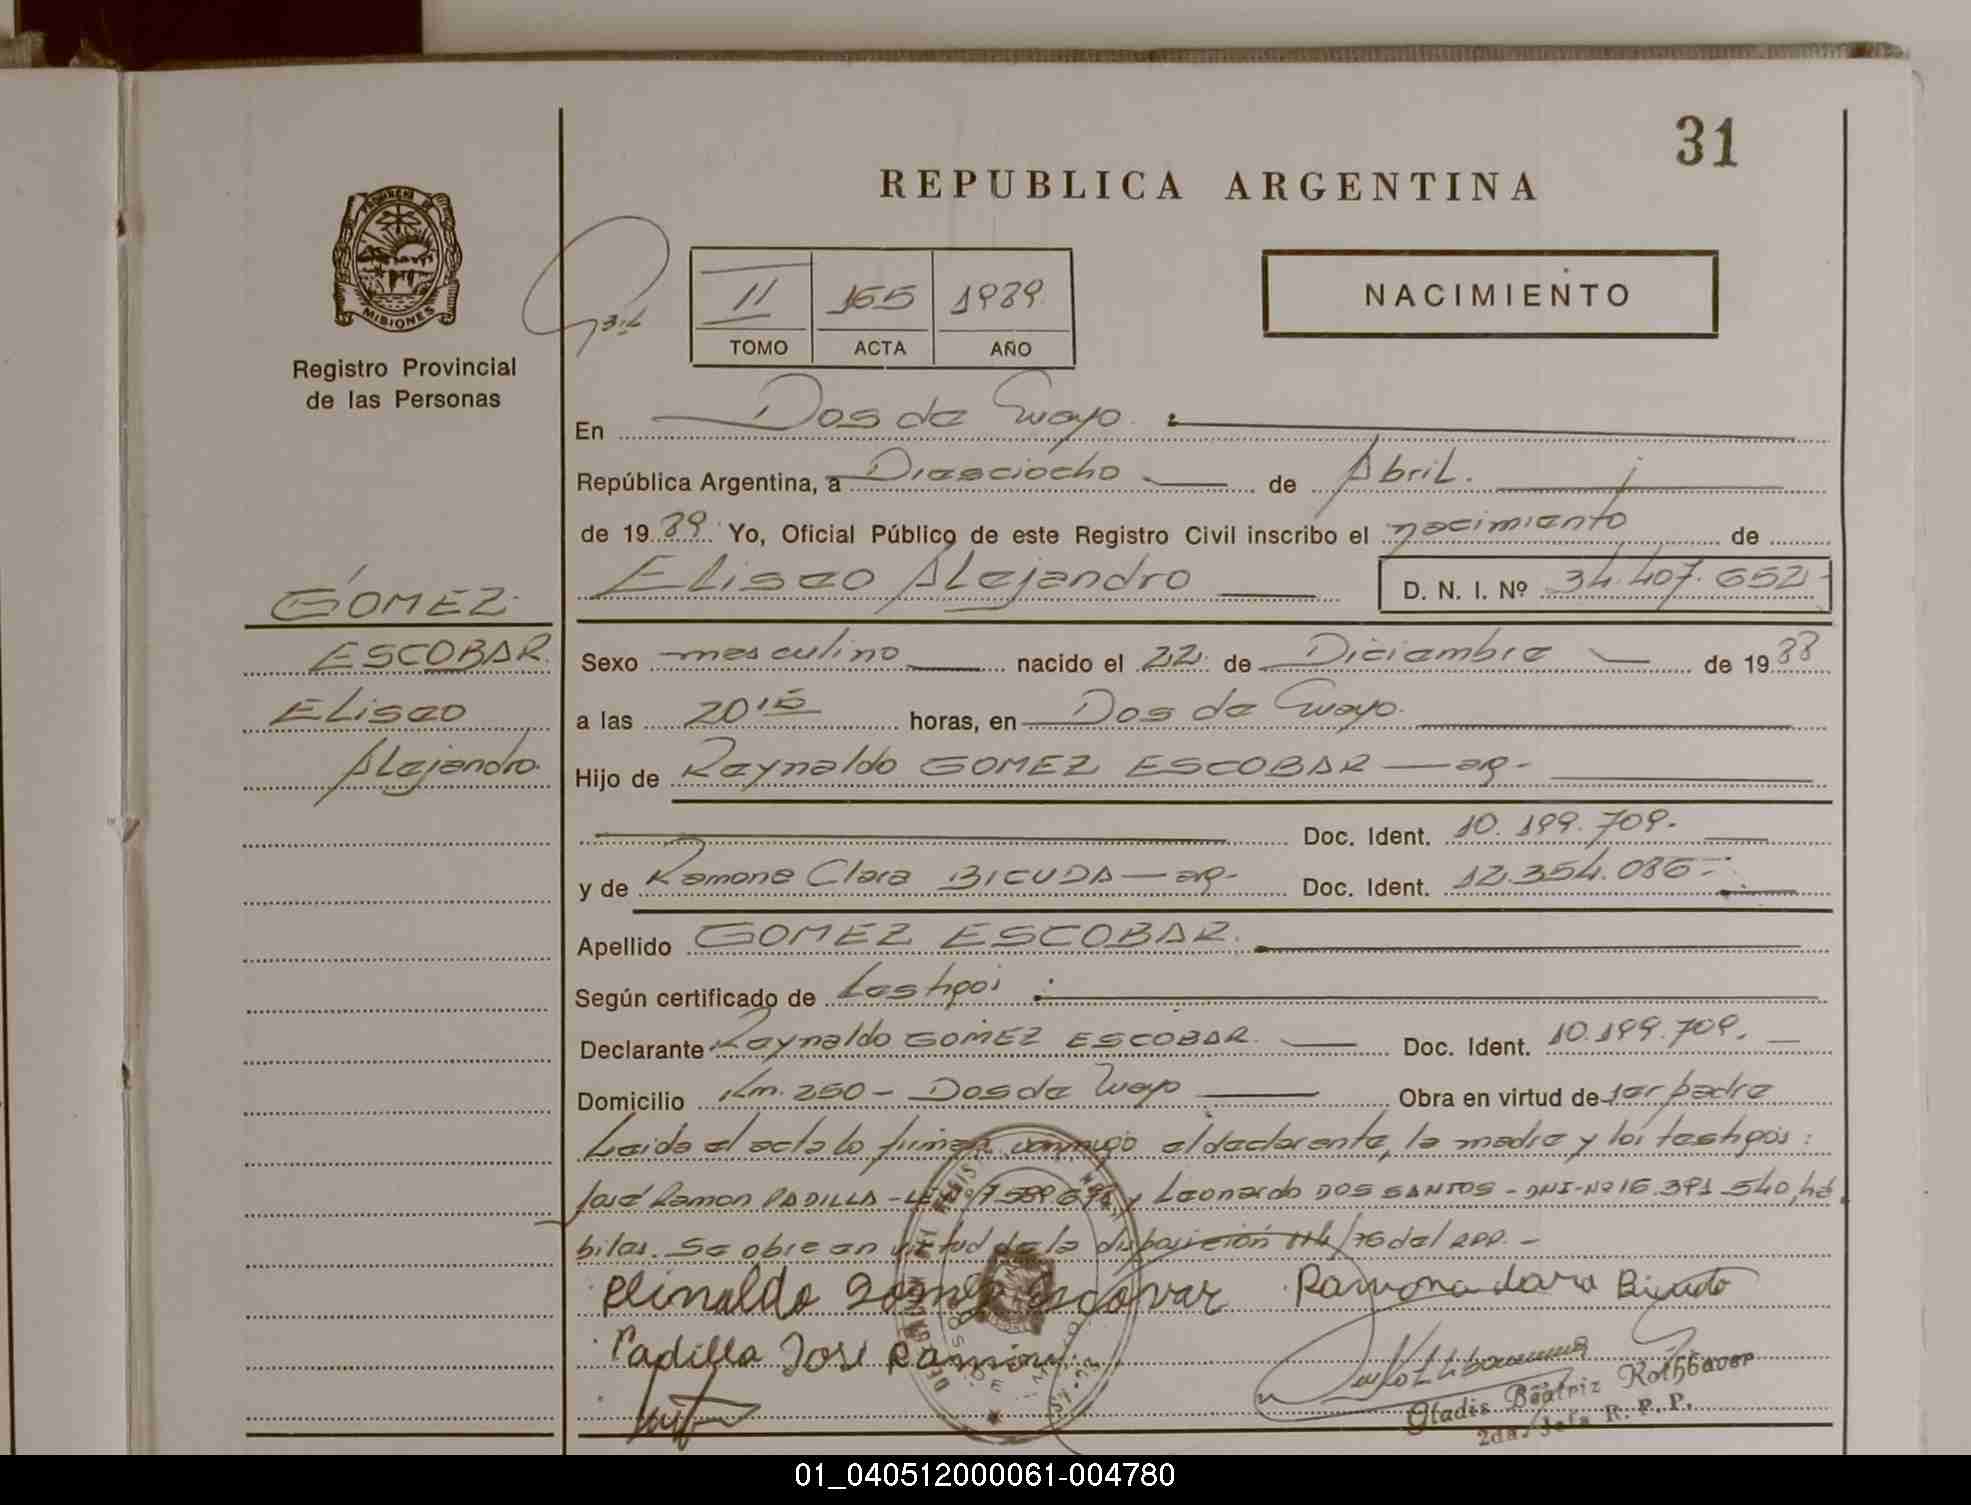 31
REPUBLICA ARGENTINA
PROVINCIA DE
MISIONES
Registro Provincial
de las Personas
II 165 1989
TOMO ACTA AÑO
NACIMIENTO
En Dos de Mayo
República Argentina, a Diesciocho de Abril.
de 1989 Yo, Oficial Público de este Registro Civil inscribo el nacimiento de
Eliseo Alejandro D. N. I. Nº 34.407.652-
GÓMEZ
ESCOBAR
Eliseo
Alejandro
Sexo masculino nacido el 22 de Diciembre de 1988
a las 20 15 horas, en Dos de Mayo.
Hijo de Reynaldo GOMEZ ESCOBAR - arg-
Doc. Ident. 10.199.709.-
y de Ramona Clara BICUDA - arg- Doc. Ident. 12.354.086-
Apellido GOMEZ ESCOBAR.
Según certificado de testigos
Declarante Reynaldo GOMEZ ESCOBAR. Doc. Ident. 10.199.709.
Domicilio Km. 250 - Dos de Mayo Obra en virtud de ser padre
Leida el acta lo firman conmigo el declarante, la madre y los testigos:
José Ramon PADILLA - y Leonardo DOS SANTOS - DNI-Nº 16.391.540, há
biles. Se obre en virtud de la disposición /76 del RPP. -
Reinaldo Gomez Escovar Ramona Clara Bicudo
Padilla José Ramón
Gladis Beatriz Rothbauer
2da. Jefa R. P. P.
01_040512000061-004780